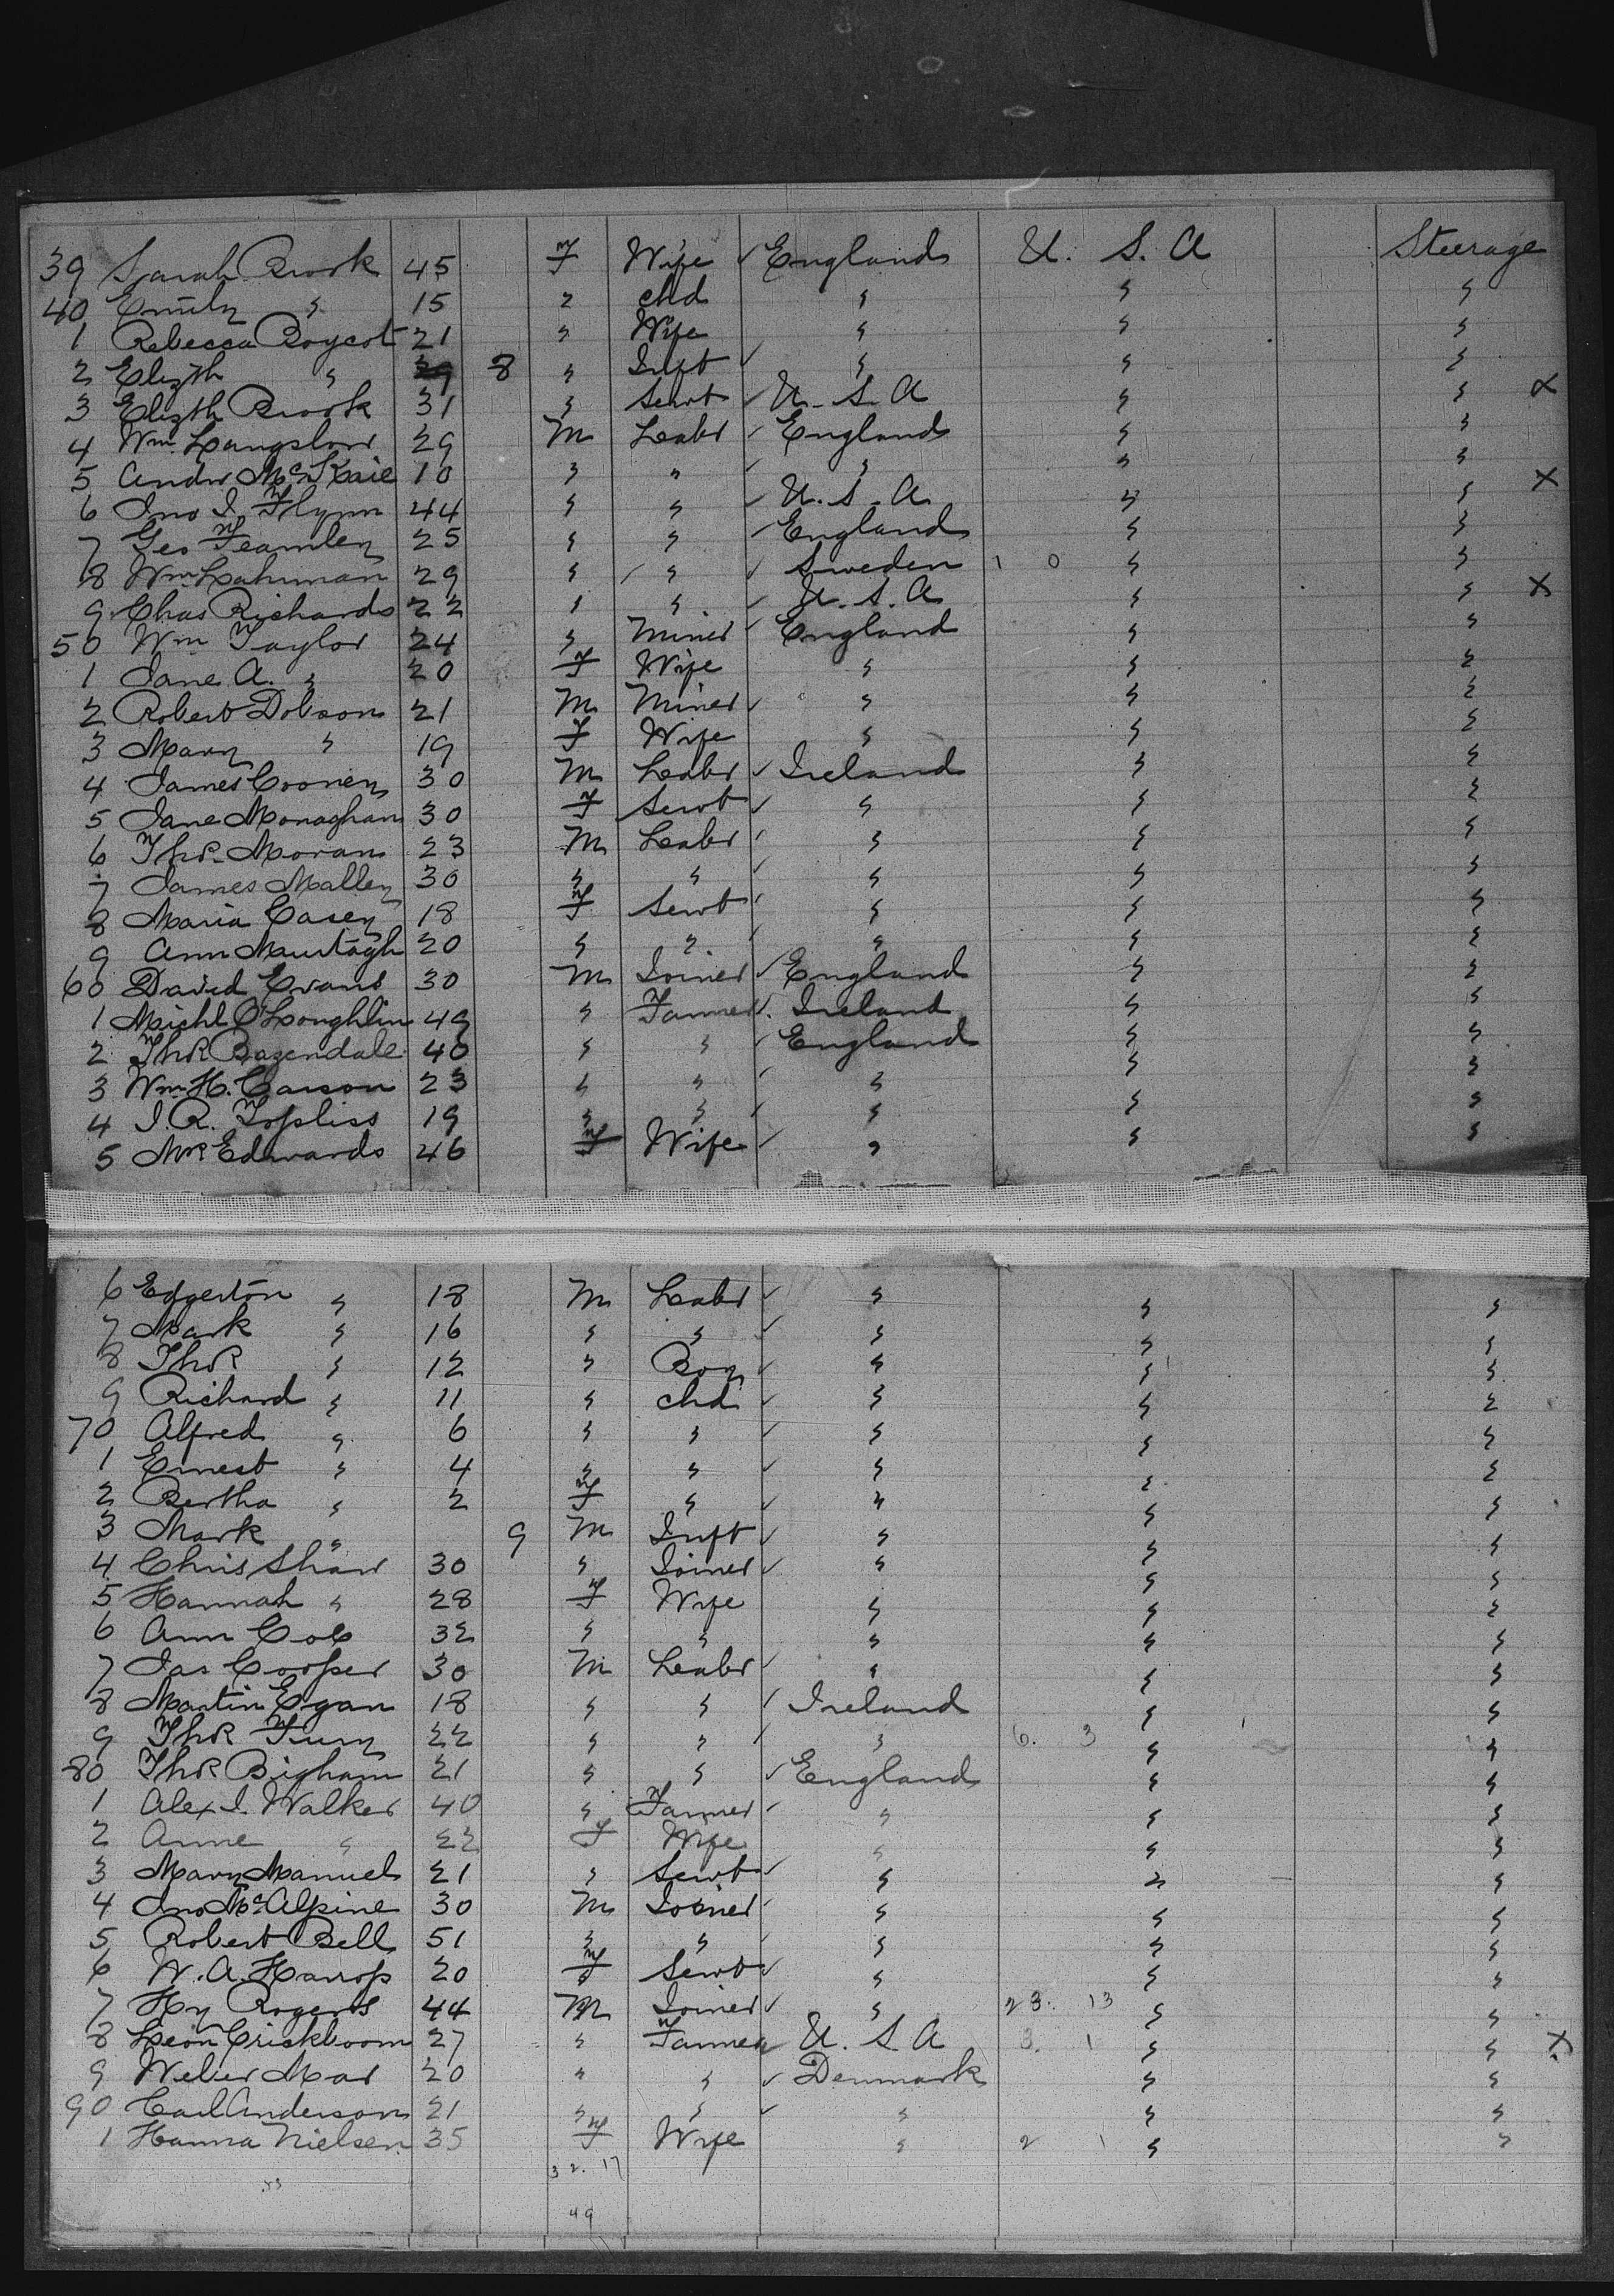 39 Sarah Brook 45 F Wife ✓ England U. S. A Steerage
40 Emily " 15 " chd " " "
1 Rebecca Boycot 21 " Wife " " "
2 Elizth " 8 " Inft ✓ " " "
3 Elizth Brook 31 " Servt ✓ U. S. A " " X
4 Wm. Langslow 29 M Labr ✓ England " "
5 Andw McKaie 10 " " ✓ " " "
6 Jno J. Flynn 44 " " ✓ U. S. A " " X
7 Geo Fearnley 25 " " ✓ England " "
8 Wm Lahmman 29 " " ✓ Sweden 1 0 " "
9 Chas Richards 22 " " ✓ U. S. A " " X
50 Wm Taylor 24 " Miner ✓ England " "
1 Jane A. " 20 F Wife " " "
2 Robert Dobson 21 M Miner ✓ " " "
3 Mary " 19 F Wife " " "
4 James Cooney 30 M Labr ✓ Ireland " "
5 Jane Monaghan 30 F Servt ✓ " " "
6 Thos. Moran 23 M Labr ✓ " " "
7 James Malley 30 " " ✓ " " "
8 Maria Casey 18 F Servt ✓ " " "
9 Ann Murtagh 20 " " ✓ " " "
60 David Evans 30 M Joiner ✓ England " "
1 Michl O'Loughlin 49 " Farmer ✓ Ireland " "
2 Thos Bazendale 40 " " ✓ England " "
3 Wm H. Carson 23 " " ✓ " " "
4 J. R. Topliss 19 " " ✓ " " "
5 Mrs Edwards 46 F Wife ✓ " " "
6 Edgerton " 18 M Labr ✓ " " "
7 Mark " 16 " " ✓ " " "
8 Thos " 12 " Boy ✓ " " "
9 Richard " 11 " chd ✓ " " "
70 Alfred " 6 " " ✓ " " "
1 Ernest " 4 " " ✓ " " "
2 Bertha " 2 F " ✓ " " "
3 Mark " 9 M Inft ✓ " " "
4 Chris Shaw 30 " Joiner ✓ " " "
5 Hannah " 28 F Wife " " "
6 Ann Cole 32 " " " " "
7 Jas Cooper 30 M Labr ✓ " " "
8 Martin Egan 18 " " ✓ Ireland " "
9 Thos Fury 22 " " ✓ " 6. 3 " "
80 Thos Bigham 21 " " ✓ England " "
1 Alex J. Walker 40 " Farmer ✓ " " "
2 Anne " 22 F Wife " " "
3 Mary Manuel 21 " Servt ✓ " " "
4 Jno McAlpine 30 M Joiner ✓ " " "
5 Robert Bell 51 " " ✓ " " "
6 W. A. Harrop 20 F Servt ✓ " " "
7 Hy Rogers 44 M Joiner ✓ " 23. 13 " "
8 Leon Crickboom 27 " Farmer ✓ U. S. A 3. 1 " " X
9 Weber Mar 20 " " ✓ Denmark " "
90 Carl Anderson 21 " " ✓ " " "
1 Hanna Nielsen 35 F Wife " 2 1 " "
32. 17
49